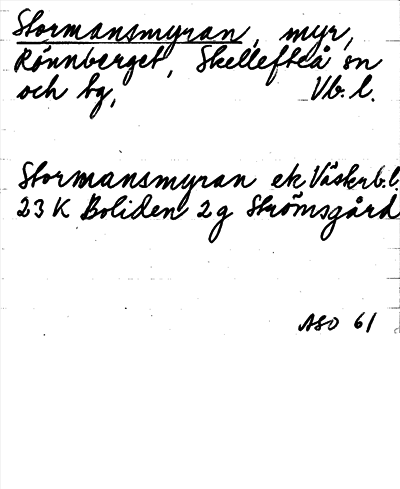 Stormansmyran, myr,
Rönnberget, Skellefteå sn
och tg, Vb. l.
Stormansmyran ek Västerb.l.
23 K Boliden 2 g Strömsgård
ASO 61